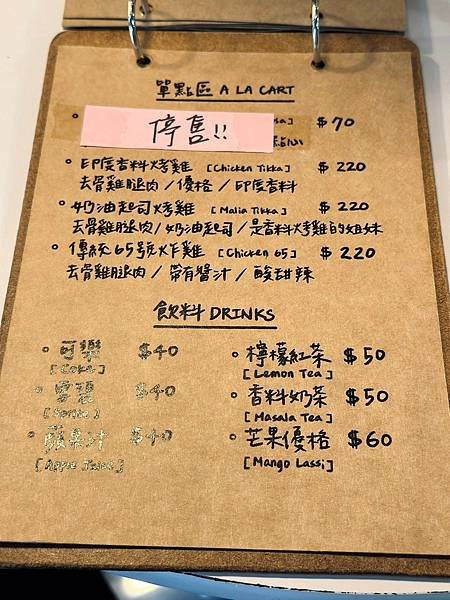 單點區 A LA CART
停售!! $70
點心
印度香料烤雞 [Chicken Tikka] $220
去骨雞腿肉/優格/印度香料
奶油起司烤雞 [Malia Tikka] $220
去骨雞腿肉/奶油起司/是香料烤雞的姐妹
傳統65號炸雞 [Chicken 65] $220
去骨雞腿肉/帶有醬汁/酸甜辣
飲料 DRINKS
可樂 $40
[Coke]
雪碧 $40
[Sprite]
蘋果汁 $40
[Apple Juice]
檸檬紅茶 $50
[Lemon Tea]
香料奶茶 $50
[Masala Tea]
芒果優格 $60
[Mango Lassi]